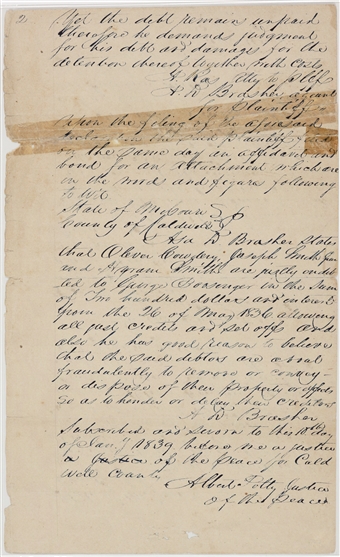 2
Yet the debt remains unpaid
therefore he demands judgment
for his debt and damages for the
detention thereof together with costs
Atty to pltff
for Plaintiff
Upon the filing of the aforesaid
the said plaintiff filed
on the same day an affidavit and
bond for an attachment which are
in the words and figures following
to wit
State of Missouri
County of Caldwell
Asa D Brasher states
that Oliver Cowdery Joseph Smith Jun
and Hyrum Smith are justly indeb
ted to George Slavenger in the Sum
of Two hundred dollars and interest
from the 26 of May 1836 allowing
all just credits and set offs and
also he has good reason to believe
that the said debtors are about
fraudulently to remove or convey
or dispose of their Property or effects
so as to hinder or delay their creditors
A D Brasher
Subscribed and sworn to this day
of Jany 1839 before me a justice
a Justice of the Peace for Cald
well County
Albert Petty Justice
of the Peace